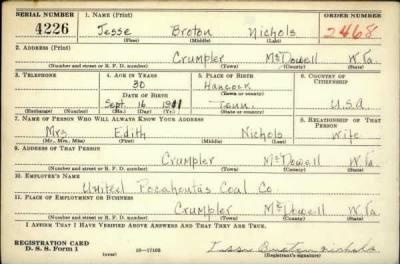 SERIAL NUMBER 1. NAME (Print) ORDER NUMBER
4226 Jesse Broton Nichols 2468
(First) (Middle) (Last)
2. ADDRESS (Print)
Crumpler McDowell W.Va.
(Number and street or R. F. D. number) (Town) (County) (State)
3. TELEPHONE 4. AGE IN YEARS 5. PLACE OF BIRTH 6. COUNTRY OF CITIZENSHIP
30 Hancock
DATE OF BIRTH (Town or county)
Sept. 16 1911 Tenn. U.S.A
(Exchange) (Number) (Mo.) (Day) (Yr.) (State or country)
7. NAME OF PERSON WHO WILL ALWAYS KNOW YOUR ADDRESS 8. RELATIONSHIP OF THAT PERSON
Mrs Edith Nichols Wife
(Mr., Mrs., Miss) (First) (Middle) (Last)
9. ADDRESS OF THAT PERSON
Crumpler McDowell W.Va.
(Number and street or R. F. D. number) (Town) (County) (State)
10. EMPLOYER'S NAME
United Pocahontas Coal Co.
11. PLACE OF EMPLOYMENT OR BUSINESS
Crumpler McDowell W.Va.
(Number and street or R. F. D. number) (Town) (County) (State)
I AFFIRM THAT I HAVE VERIFIED ABOVE ANSWERS AND THAT THEY ARE TRUE.
REGISTRATION CARD
D. S. S. Form 1 16—17105 (Registrant's signature)